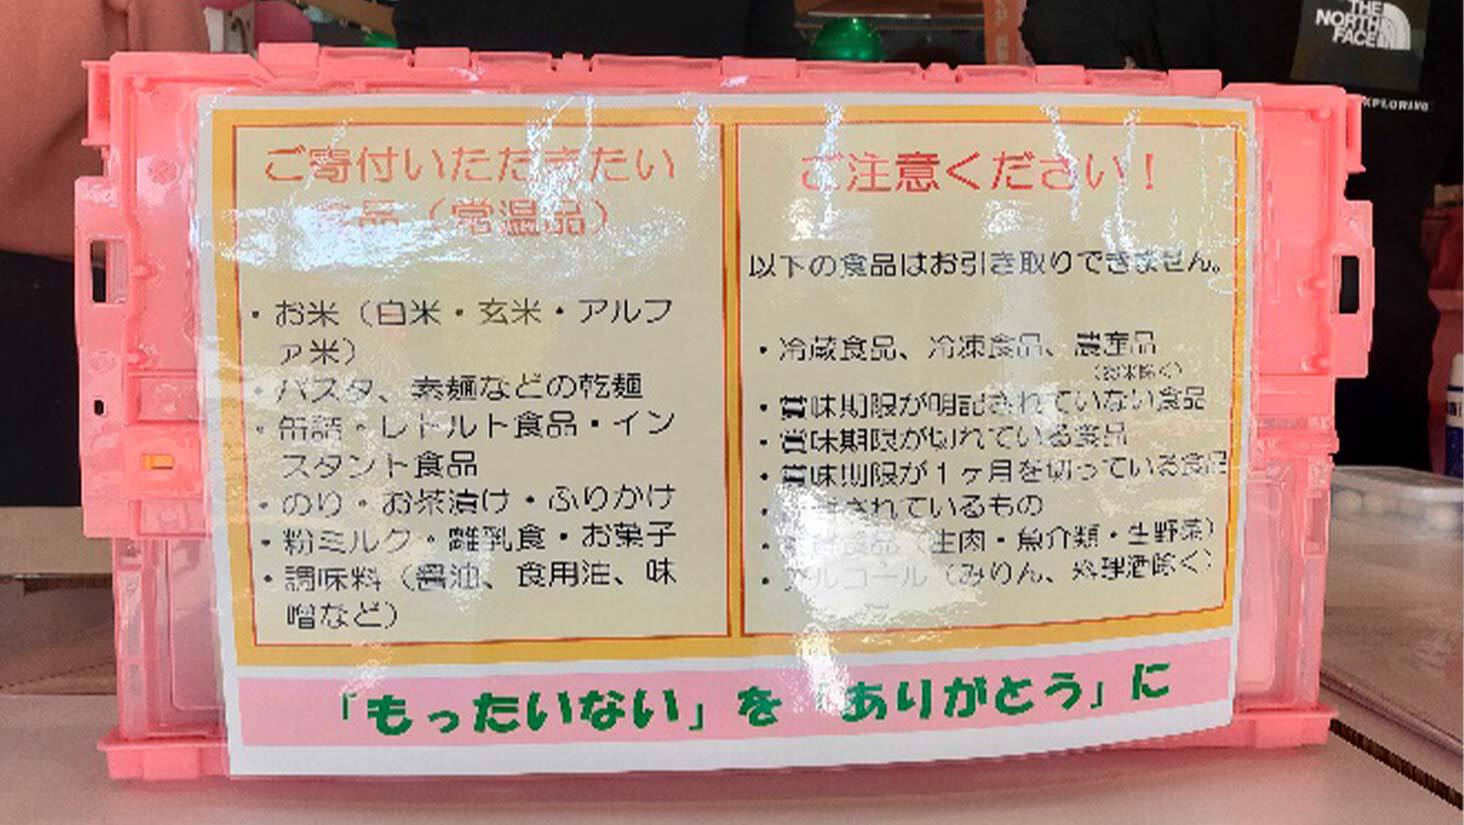 THE
NORTH
FACE
XPLORING
ご寄付いただきたい
食品（常温品）
・お米（白米・玄米・アルフ
ァ米）
・パスタ、素麺などの乾麺
・缶詰・レトルト食品・イン
スタント食品
・のり・お茶漬け・ふりかけ
・粉ミルク・離乳食・お菓子
・調味料（醤油、食用油、味
噌など）
ご注意ください！
以下の食品はお引き取りできません。
・冷蔵食品、冷凍食品、農産品
（お米除く）
・賞味期限が明記されていない食品
・賞味期限が切れている食品
・賞味期限が１ヶ月を切っている食品
・されているもの
・食品（生肉・魚介類・生野菜）
・アルコール（みりん、料理酒除く）
「もったいない」を「ありがとう」に